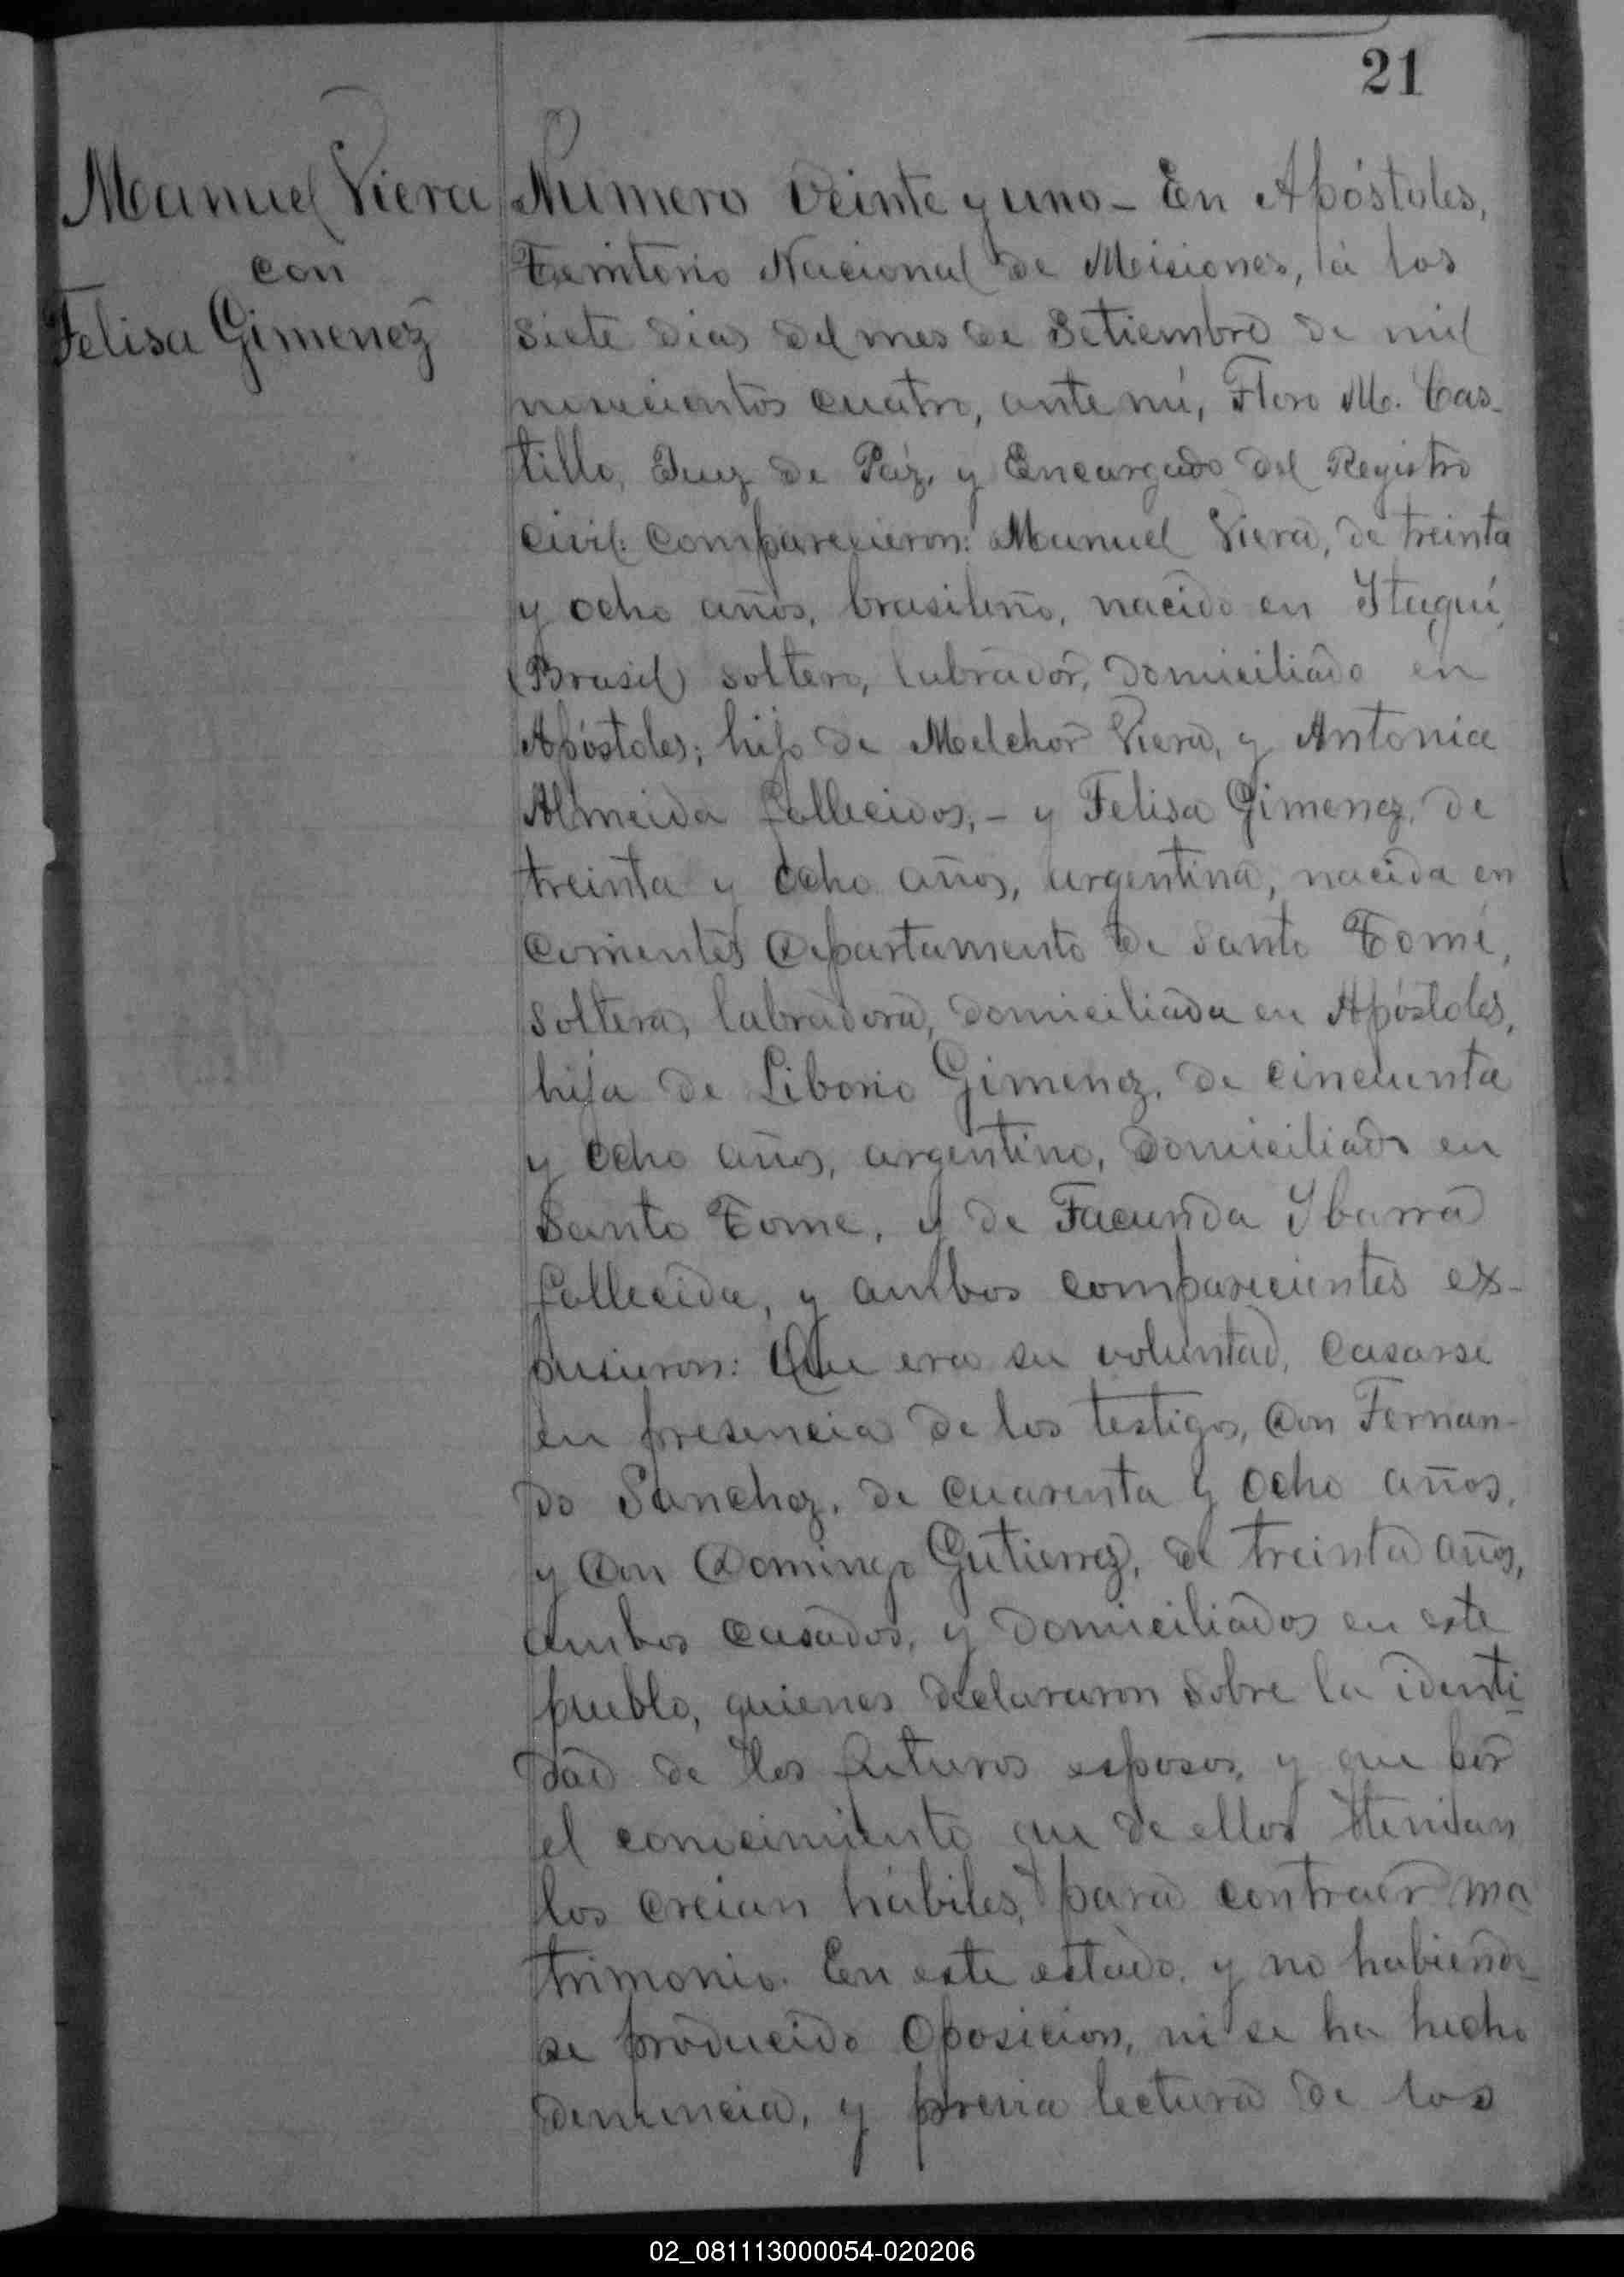 21
Manuel Viera
con
Felisa Gimenez
Numero Veinte y uno - En Apóstoles,
Territorio Nacional de Misiones, á los
siete dias del mes de Setiembre de mil
novecientos cuatro, ante mi, Floro M. Cas-
tillo, Juez de Paz, y Encargado del Registro
Civil: Comparecieron: Manuel Viera, de treinta
y ocho años, brasileño, nacido en Itaquí,
(Brasil) soltero, labrador, domiciliado en
Apóstoles; hijo de Melchor Viera, y Antonia
Almeida fallecidos; - y Felisa Gimenez, de
treinta y ocho años, argentina, nacida en
Corrientes Departamento de Santo Tomé,
soltera, labradora, domiciliada en Apóstoles,
hija de Liborio Gimenez, de cincuenta
y ocho años, argentino, domiciliado en
Santo Tome, y de Facunda Ybarra
fallecida, y ambos comparecientes ex-
pusieron: Que era su voluntad, casarse
en presencia de los testigos, Don Fernan-
do Sanchez, de cuarenta y ocho años,
y Don Domingo Gutierrez, de treinta años,
ambos casados, y domiciliados en este
pueblo, quienes declararon sobre la identi-
dad de los futuros esposos, y que por
el conocimiento que de ellos tenian
los creian hábiles, para contraer ma
trimonio. En este estado, y no habiendo-
se producido Oposicion, ni se ha hecho
denuncia, y previa lectura de los
02_081113000054-020206